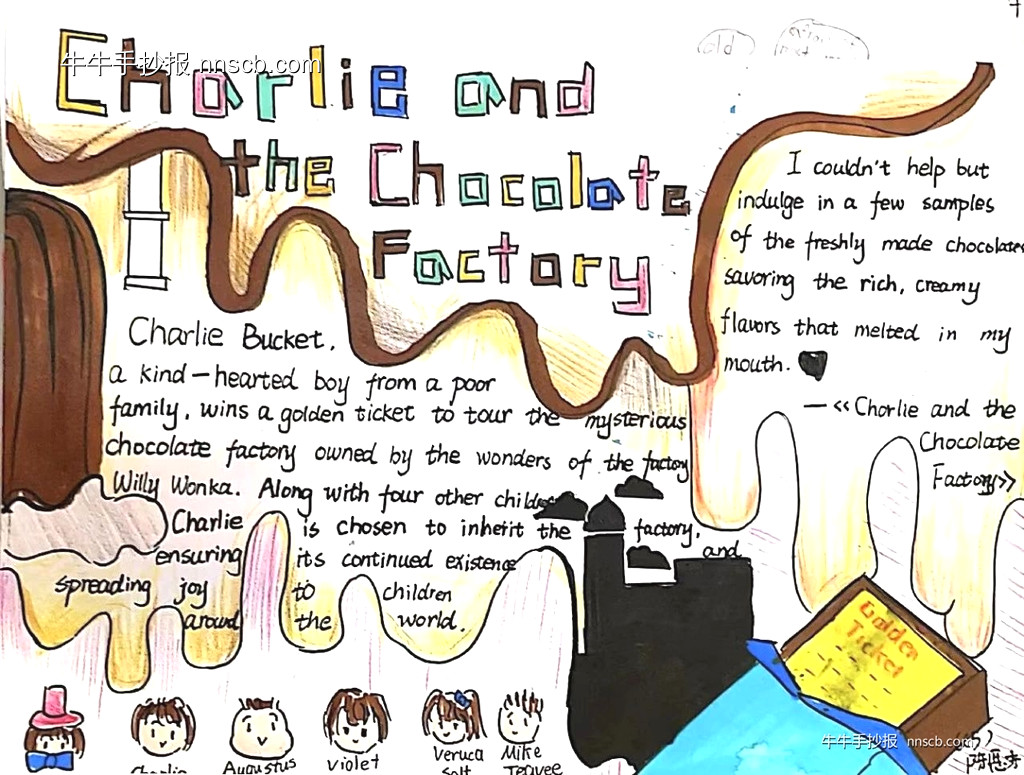 牛牛手抄报 nnscb.com
Charlie and
the Chocolate
Factory
old
Charlie Bucket.
a kind-hearted boy from a poor
family, wins a golden ticket to tour the mysterious
chocolate factory owned by the wonders of the factory
Willy Wonka. Along with four other children
Charlie is chosen to inherit the factory,
ensuring its continued existence and
spreading joy to children
around the world.
I couldn't help but
indulge in a few samples
of the freshly made chocolates
savoring the rich, creamy
flavors that melted in my
mouth.
—《Charlie and the
Chocolate
Factory》
Golden
Ticket
Charlie
Augustus
Violet
Veruca
Salt
Mike
Teavee
牛牛手抄报 nnscb.com